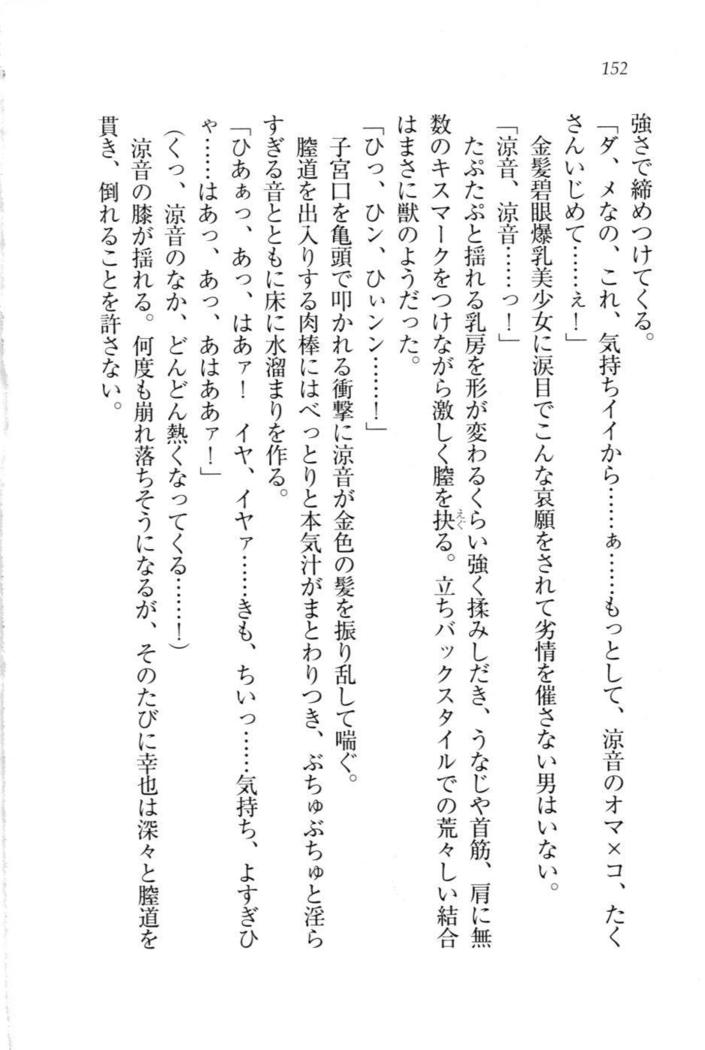 152
強さで締めつけてくる。
「ダ、メなの、これ、気持ちイイから……ぁ……もっとして、涼音のオマ×コ、たく
さんいじめて……ぇ！」
金髪碧眼爆乳美少女に涙目でこんな哀願をされて劣情を催さない男はいない。
「涼音、涼音……っ！」
たぷたぷと揺れる乳房を形が変わるくらい強く揉みしだき、うなじや首筋、肩に無
数のキスマークをつけながら激しく膣を抉る。立ちバックスタイルでの荒々しい結合
はまさに獣のようだった。
「ひっ、ひン、ひぃンン……！」
子宮口を亀頭で叩かれる衝撃に涼音が金色の髪を振り乱して喘ぐ。
膣道を出入りする肉棒にはべっとりと本気汁がまとわりつき、ぶちゅぶちゅと淫ら
すぎる音とともに床に水溜まりを作る。
「ひあぁっ、あっ、はあァ！　イヤ、イヤァ……きも、ちいっ……気持ち、よすぎひ
ゃ……はあっ、あっ、あはああァ！」
（くっ、涼音のなか、どんどん熱くなってくる……！）
涼音の膝が揺れる。何度も崩れ落ちそうになるが、そのたびに幸也は深々と膣道を
貫き、倒れることを許さない。
えぐ